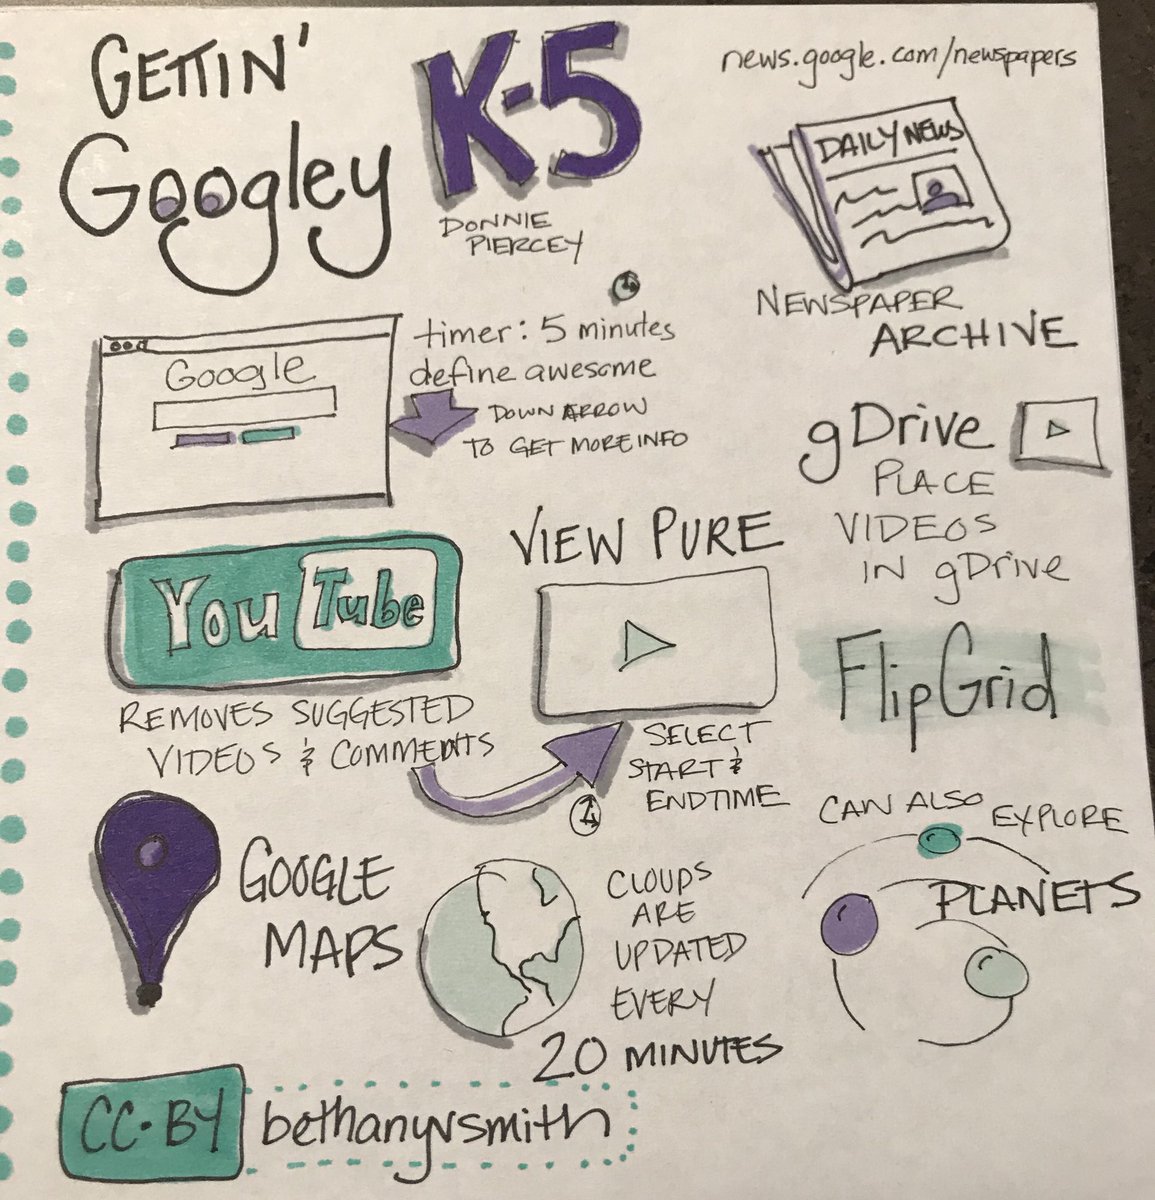 GETTIN'
Googley
K-5
DONNIE
PIERCEY
news.google.com/newspapers
DAILY NEWS
NEWSPAPER
ARCHIVE
Google
timer: 5 minutes
define awesome
DOWN ARROW
TO GET MORE INFO
gDrive
PLACE
VIDEOS
IN gDrive
YouTube
REMOVES SUGGESTED
VIDEOS & COMMENTS
VIEW PURE
SELECT
START &
ENDTIME
FlipGrid
GOOGLE
MAPS
CLOUDS
ARE
UPDATED
EVERY
20 MINUTES
CAN ALSO EXPLORE
PLANETS
CC·BY bethanyvsmith